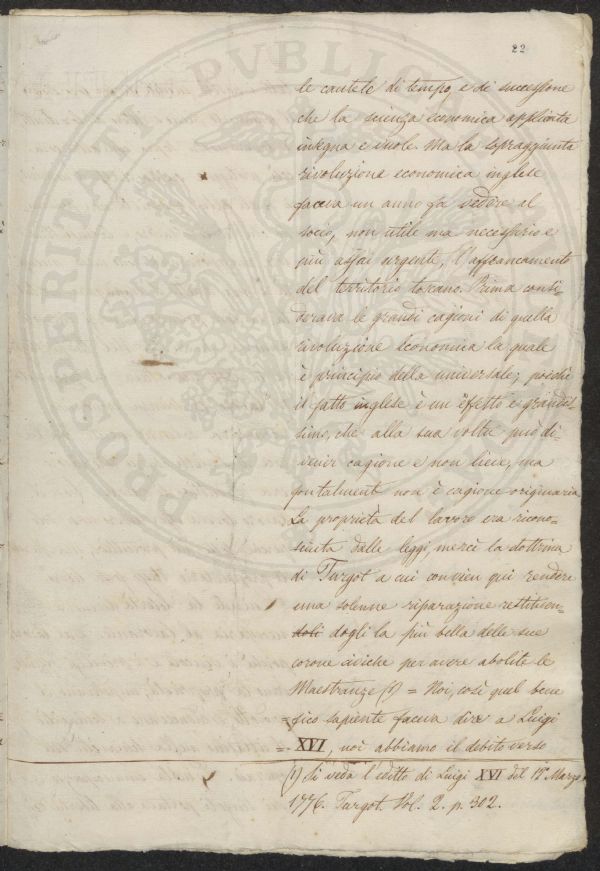 22
le cautele di tempo, e di successione
che la scienza economica applicata
insegna e vuole. Ma la sopraggiunta
rivoluzione economica inglese
faceva un anno fa vedere al
socio, non utile ma necessario e
più assai urgente, l'affrancamento
del territorio toscano. Prima consi-
derava le grandi cagioni di quella
rivoluzione economica la quale
è principio della universale; poichè
il fatto inglese è un effetto e grandis-
simo, che alla sua volta può di-
venir cagione e non lieve, ma
fontalmente non è cagione originaria
La proprietà del lavoro era ricono-
sciuta dalle leggi, mercè la dottrina
di Turgot a cui convien qui rendere
una solenne riparazione restituen-
doli dogli la più bella delle sue
corone civiche per avere abolite le
Maestranze (1) = Noi, così quel bene
=fico sapiente faceva dire a Luigi
= XVI, noi abbiamo il debito verso
(1) Si veda l'editto di Luigi XVI del 12 Marzo
1776. Turgot. Vol. 2. p. 302.
PROSPERITATI PUBLICAE